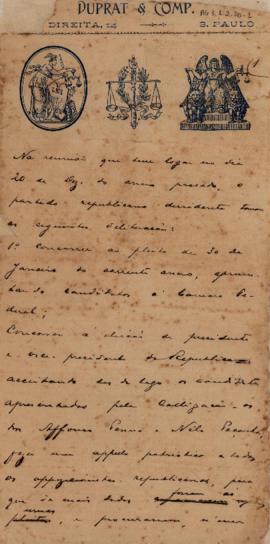 DUPRAT & COMP.
DIREITA, 14 S. PAULO
Na reunião que teve logar no dia
20 de Dz. do anno passado, o
partido republicano dissidente tomou
as seguintes deliberações:
1º Concorrer ao pleito de 30 de
Janeiro do corrente anno, apresen-
tando candidatos á Camara Fe-
deral;
Concorrer á eleição de presidente
e vice presidente da Republica
acceitando desde logo os candidatos
apresentados pela Colligação - os
drs Affonso Penna e Nilo Peçanha,
fazer um appello patriotico a todos
os republicanos, para
que de mais dados foram as
urnas, e procurarem